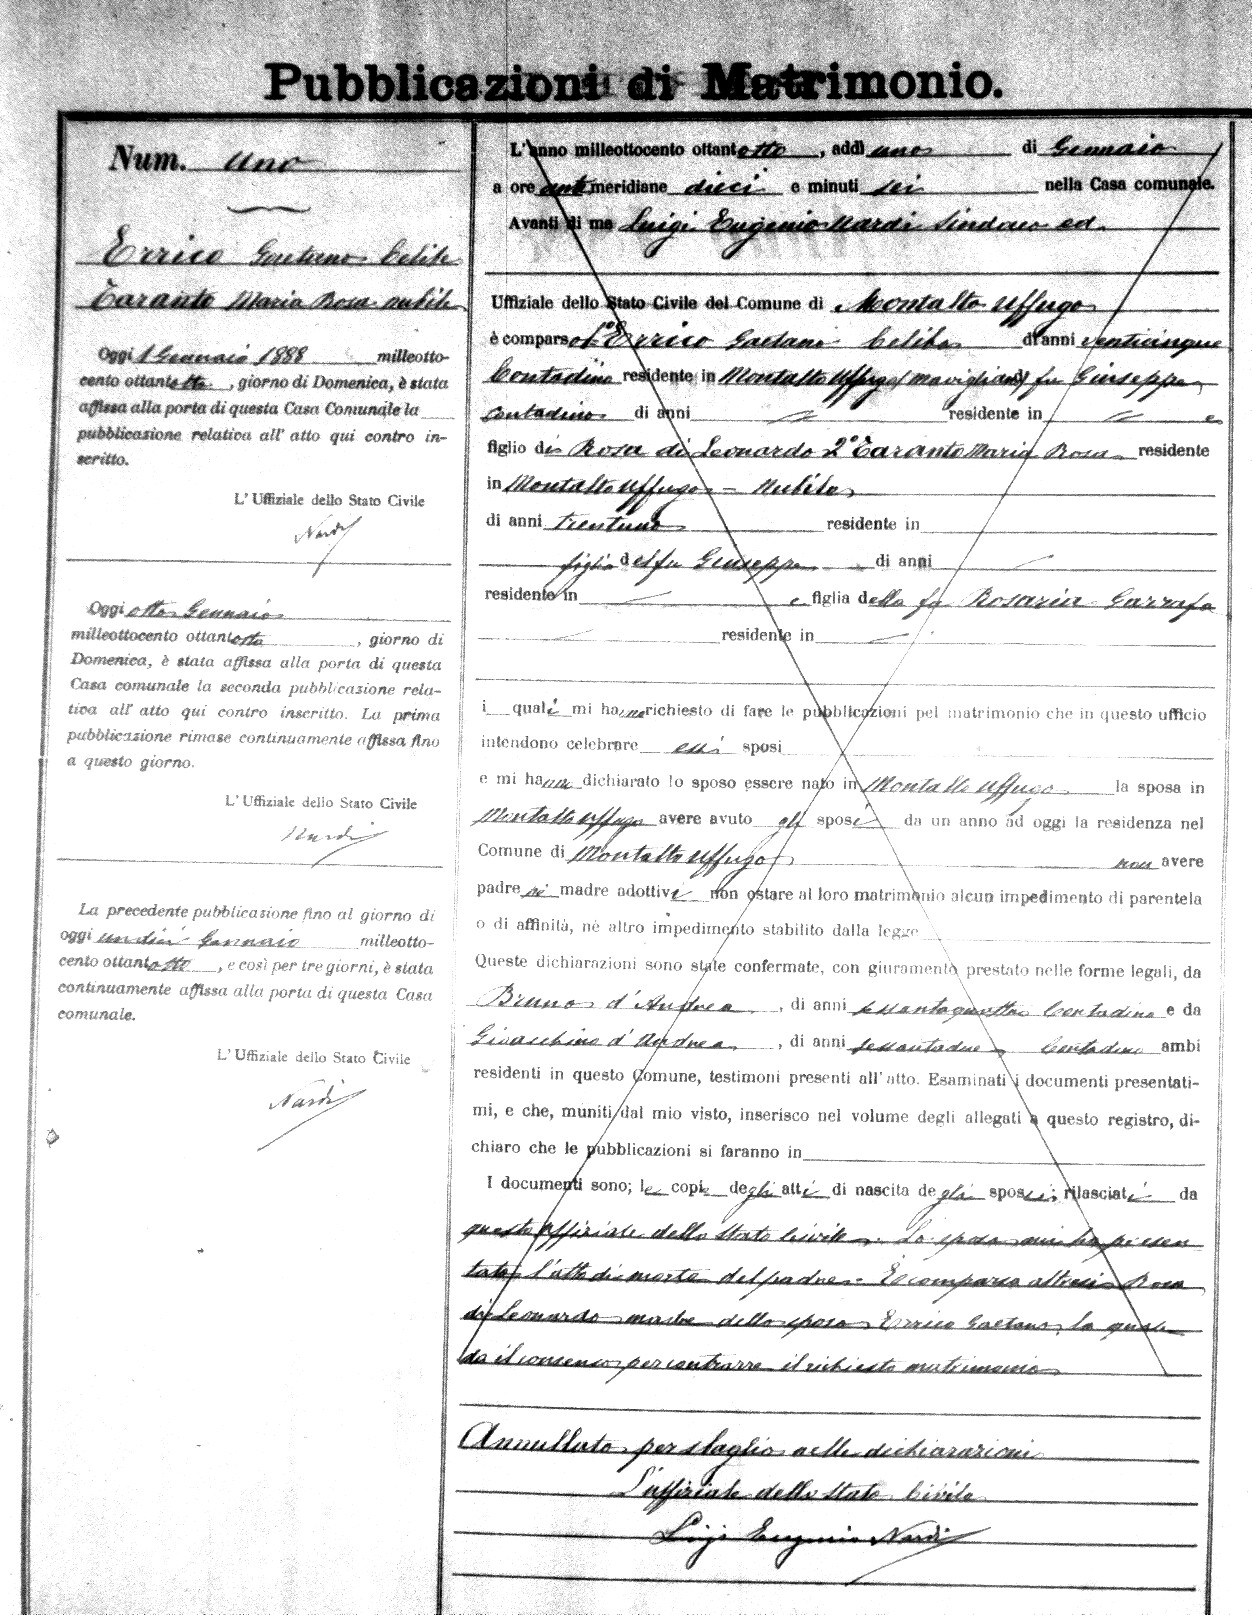 Pubblicazioni di Matrimonio.
Num. uno
Errico Gaetano Celibe
Taranto Maria Rosa nubile
Oggi 1 Gennaio 1888 milleotto-
cento ottantotto, giorno di Domenica, è stata
affissa alla porta di questa Casa Comunale la
pubblicazione relativa all' atto qui contro in-
scritto.
L' Uffiziale dello Stato Civile
Nardi
Oggi otto Gennaio
milleottocento ottantotto, giorno di
Domenica, è stata affissa alla porta di questa
Casa comunale la seconda pubblicazione rela-
tiva all' atto qui contro inscritto. La prima
pubblicazione rimase continuamente affissa fino
a questo giorno.
L' Uffiziale dello Stato Civile
Nardi
La precedente pubblicazione fino al giorno di
oggi undici Gennaio milleotto-
cento ottantotto, e così per tre giorni, è stata
continuamente affissa alla porta di questa Casa
comunale.
L' Uffiziale dello Stato Civile
Nardi
L'anno milleottocento ottantotto, addì uno di Gennaio
a ore antimeridiane dieci e minuti sei nella Casa comunale.
Avanti di me Luigi Eugenio Nardi Sindaco ed
Uffiziale dello Stato Civile del Comune di Montalto Uffugo
è comparso 1º Errico Gaetano Celibe di anni venticinque
Contadino residente in Montalto Uffugo fu Giuseppe
Contadino di anni residente in e
figlio di Rosa di Leonardo 2º Taranto Maria Rosa residente
in Montalto Uffugo - Nubile
di anni trentuno residente in
figlia del fu Giuseppe di anni
residente in e figlia della fu Rosaria Garrafa
residente in
i quali mi hanno richiesto di fare le pubblicazioni pel matrimonio che in questo ufficio
intendono celebrare essi sposi
e mi hanno dichiarato lo sposo essere nato in Montalto Uffugo la sposa in
Montalto Uffugo avere avuto gli sposi da un anno ad oggi la residenza nel
Comune di Montalto Uffugo non avere
padre nè madre adottivi non ostare al loro matrimonio alcun impedimento di parentela
o di affinità, nè altro impedimento stabilito dalla legge
Queste dichiarazioni sono state confermate, con giuramento prestato nelle forme legali, da
Bruno d'Andrea, di anni sessantaquattro Contadino e da
Gioacchino d'Andrea, di anni sessantadue Contadino ambi
residenti in questo Comune, testimoni presenti all'atto. Esaminati i documenti presentati-
mi, e che, muniti dal mio visto, inserisco nel volume degli allegati a questo registro, di-
chiaro che le pubblicazioni si faranno in
I documenti sono; le copie degli atti di nascita degli sposi; rilasciati da
questo Uffiziale dello Stato Civile. Lo sposo mi ha presen
tato l'atto di morte del padre. È comparsa altresì Rosa
di Leonardo madre dello sposo Errico Gaetano, la quale
dà il consenso per contrarre il richiesto matrimonio
Annullato per sbaglio nelle dichiarazioni
L'uffiziale dello Stato Civile
Luigi Eugenio Nardi